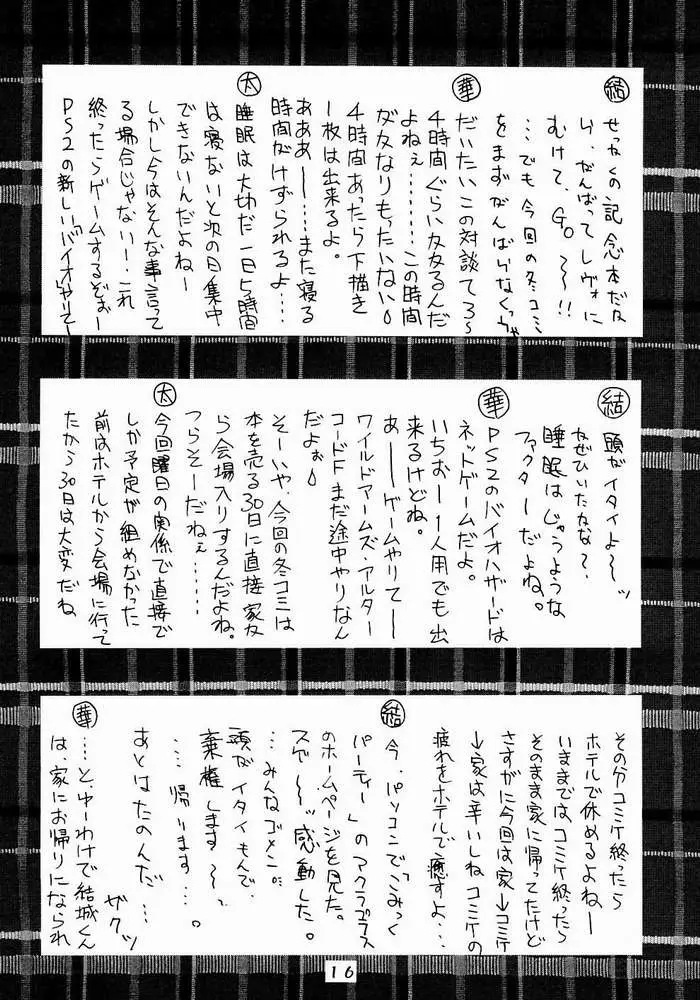 結
せっかくの記念本だな
い、がんばってレヴォに
むけて、GO〜〜!!
…でも今回の冬コミ
をまずがんばらなくっちゃ
華
だいたいこの対談て3〜
4時間ぐらいかかるんだ
よねぇ……この時間
がかなりもったいない
4時間あったら下描き
1枚は出来るよ。
あああー……また寝る
時間がけずられるよ…
太
睡眠は大切だ一日5時間
は寝ないと次の日集中
できないんだよねー
しかし今はそんな事言って
る場合じゃないー!これ
終ったらゲームするぞぉー
PS2の新しい「バイオ」やりてー
結
頭がイタイよ〜〜ッ
なぜひいたかな?、
睡眠はじゅうような
ファクターだよね。
華
PS2のバイオハザードは
ネットゲームだよ。
いちおー1人用でも出
来るけどね。
あーーゲームやりてーー
ワイルドアームズ・アルター
コードFまだ途中やりなん
だよぉ
そーいや、今回の冬コミは
本を売る30日に直接家か
ら会場入りするんだよね。
つらそーだねぇ……
太
今回曜日の関係で直接で
しか予定が組めなかった
前はホテルから会場に行って
たから30日は大変だね
その分コミケ終ったら
ホテルで休めるよねー
いままではコミケ終ったら
そのまま家に帰ってたけど
さすがに今回は家→コミケ
→家は辛いしねコミケの
疲れをホテルで癒すよ…
結
今、パソコンで「こみっく
パーティー」のアクアプラス
のホームページを見た。
スゲ〜〜ッ感動した。
…みんなゴメン。
頭がイタイもんで、
棄権します〜〜
…帰ります…。
あとはたのんだ…
ザクッ
華
…と、ゆーわけで結城くん
は、家にお帰りになられ
16